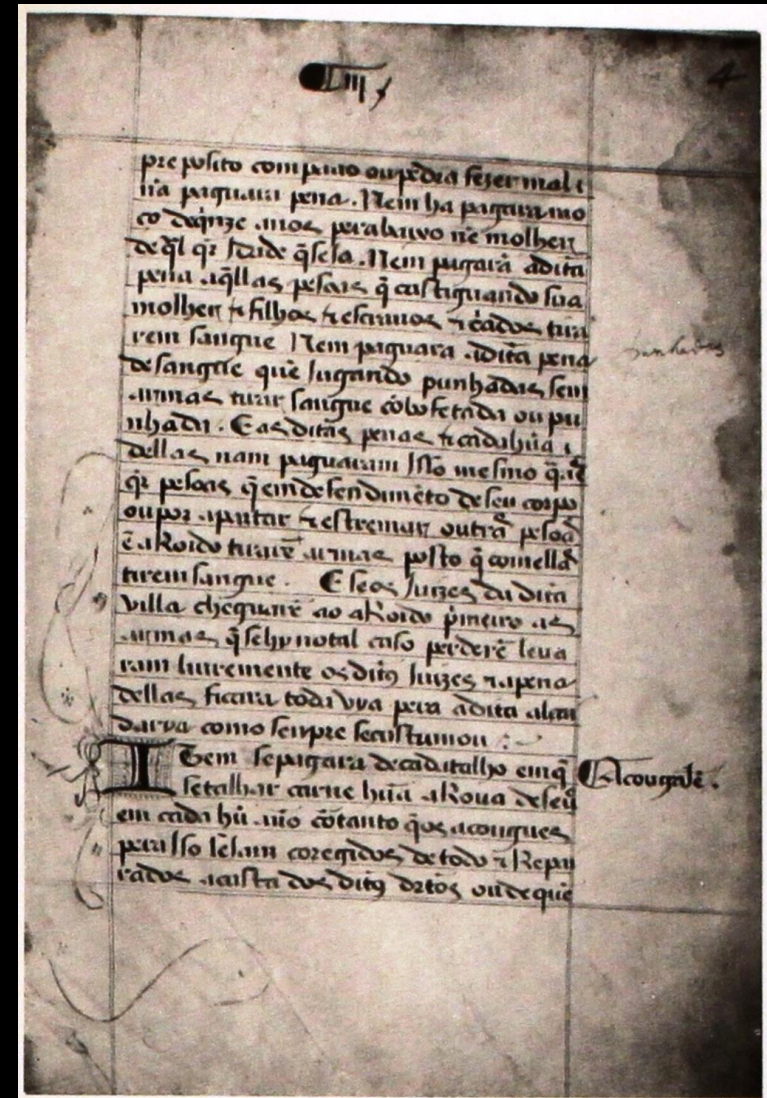 iiij
4
preposito com paao ou pedra fezer mal i
nã paguara pena. Nem ha pagara mo
ço deqĩnze anos pera baixo nẽ molher
de q̃l q̃r Idade q̃ seJa. Nem pagarã adita
pena aq̃llas pesoas q̃ castiguando sua
molher & filhos & escravos & c̃ados tira
rem sangue Nem paguara adita pena
de sangue quẽ Jugando punhadas sem
armas tirar sangue cõ bofetada ou pu
nhada. E as ditas penas & cada hũa
dellas nam paguaram Isso mesmo q̃aes
q̃r pesoas q̃ em defendimẽto de seu corpo
ou por apartar & estremar outras pesoas
ẽ aRoido tirarẽ armas posto q̃ com ellas
tirem sangue. E se os Juizes da dita
villa cheguarẽ ao aRoido p̃meiro as
armas q̃ se hy no tal caso perderẽ leva
ram livremente os ditos Juizes & a pena
dellas ficara toda viva pera a dita alcai
daria como senpre se custumou :~
Item se pagara de cada talho em q̃
se talhar carne hũa aRova de seu
em cada hũ año cõ tanto q̃ os açougues
pera Isso seJam coregidos de todo & Repa
rados a custa dos ditos dr̃tos onde que
Açougajẽ.
punhadas